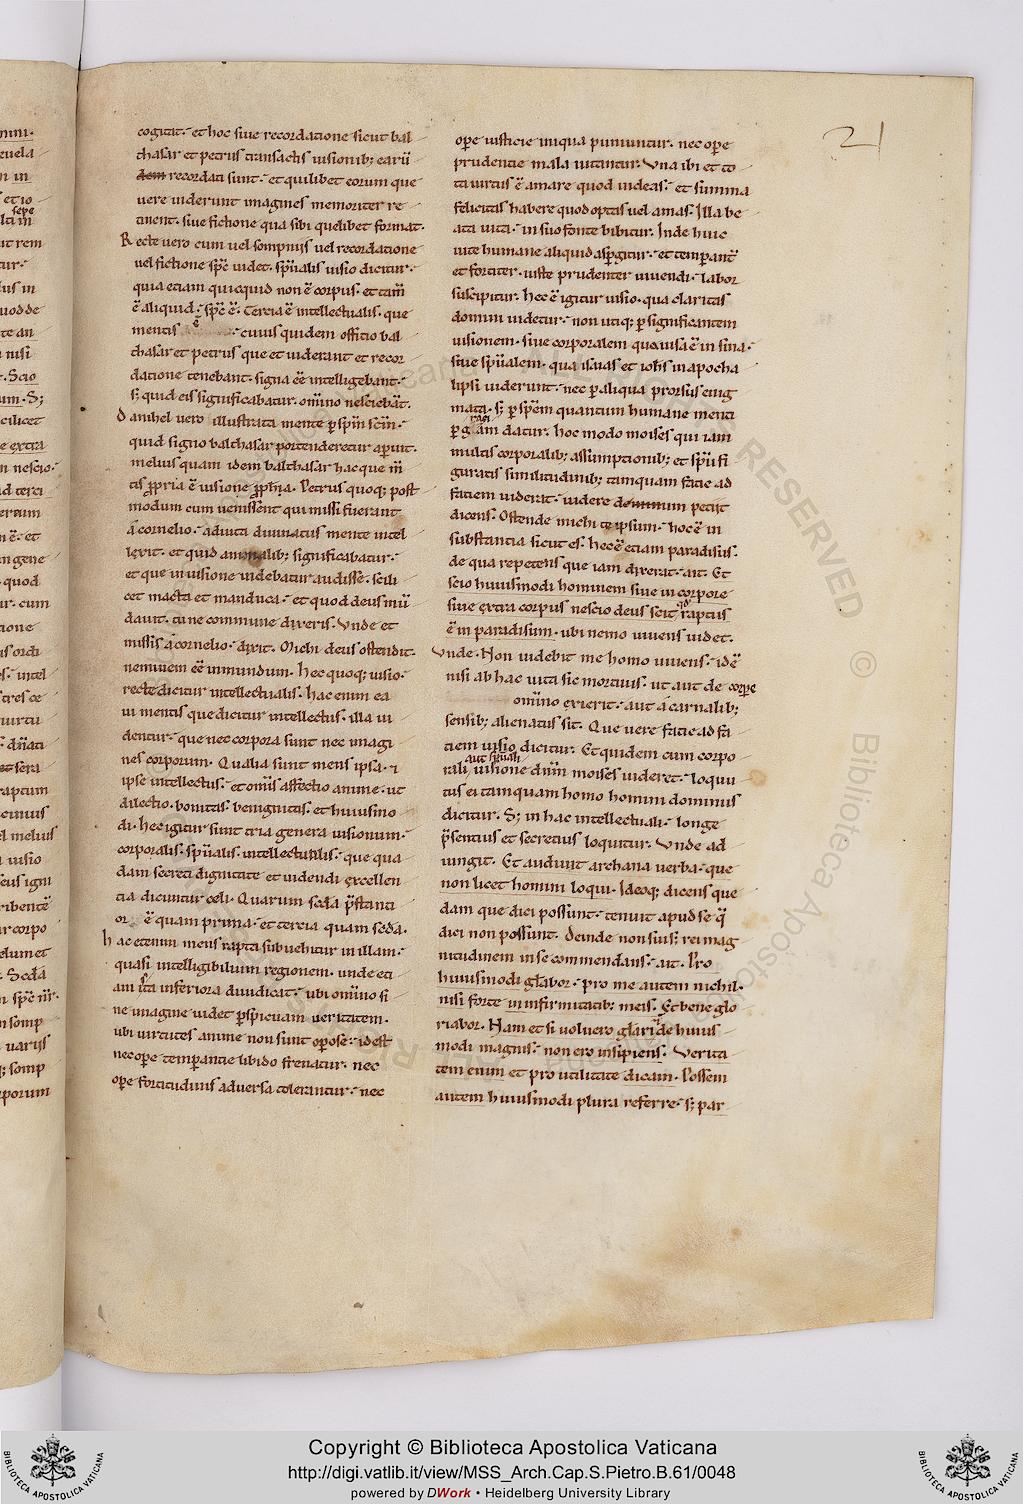 21
cogitat. et hoc siue recordatione sicut bal
thasar et petrus transactis uisionib; earū
dem recordati sunt. et quilibet eorum que
uere uiderunt imagines memoriter re
tinent. siue fictione qua sibi quelibet format.
Recte uero cum uel sompnijs uel recordatione
uel fictione spc̄ uidet. sp̄ualis uisio dicitur.
quia etiam quicquid non ē corpus. et tam̄
ē aliquid. spc̄ ē. Tercia ē intellectualis. que
mentis ē. cuius quidem officio bal
thasar et petrus que et uiderant et recor
datione tenebant. signa eē intelligebant.
s; quid eis significabatur. om̄ino nesciebāt.
danihel uero illustrata mente p spm̄ scm̄.
quid signo balthasar portenderetur aperuit.
melius quam idem balthasar hac que m̄
tis ppria ē uisione pph̄ia. Petrus quoq; post
modum cum uenissent qui missi fuerant
a cornelio. adiuta diuinatus mente intel
lexit. et quid animalib; significabatur.
et que in uisione uidebatur audisse. scili
cet macta et manduca. et quod deus mū
dauit. tu ne commune dixeris. Unde et
missis a cornelio. dixit. Michi deus ostendit.
neminem eē inmundum. Hec quoq; uisio.
recte dicitur intellectualis. hac enim ea
ui mentis que dicitur intellectus. illa ui
dentur. que nec corpora sunt nec imagi
nes corporum. Qualia sunt mens ipsa. 
ipse intellectus. et om̄is affectio anime. ut
dilectio. bonitas. benignitas. et huiusmo
di. hec igitur sunt tria genera uisionum.
corporalis. sp̄ualis. intellectualis. que qua
dam secreti dignitate et uidendi excellen
tia dicuntur celi. Quarum scd̄a p̄stanti
or ē quam prima. et tercia quam scd̄a.
hac etenim mens rapta subuehitur in illam.
quasi intelligibilium regionem. unde eti
am ista inferiora diiudicat. ubi om̄ino si
ne imagine uidet pspicuam ueritatem.
ubi uirtutes anime non sunt operose. id est
nec ope temperantie libido frenatur. nec
ope fortitudinis aduersa tolerantur. nec
ope iusticie iniqua puniuntur. nec ope
prudentie mala uitantur. Una ibi et to
ta uirtus ē amare quod uideas. et summa
felicitas habere quod optas uel amas. Illa be
ata uita. in suo fonte bibitur. Inde huic
uite humane aliquid aspgitur. et temperant̄
et fortiter. iuste prudenter uiuendi. labor
suscipitur. Hec ē igitur uisio. qua claritas
domini uidetur. non utiq; p significantem
uisionem. siue corporalem que uisa ē in sina.
siue sp̄ualem. qua isaias et ioh̄s in apocha
lipsi uiderunt. nec p aliqua prorsus enig
mata. s; p spēm quantum humane menti
p gr̄am datur. hoc modo moises qui iam
multis corporalib; assumptionib; et sp̄u fi
guratis similitudinib; tamquam facie ad
faciem uiderat. uidere dominum petiit
dicens. Ostende michi te ipsum. hoc ē in
substantia sicut es. hec ē etiam paradisus.
de qua repetens que iam dixerat. ait. Et
scio huiusmodi hominem siue in corpore
siue extra corpus nescio deus scit qd raptus
ē in paradisum. ubi nemo uiuens uidet.
Unde. Non uidebit me homo uiuens. id ē
nisi ab hac uita sic mortuus. ut aut de corpe
om̄ino exierit. aut a carnalib;
sensib; alienatus sit. Que uere facie ad fa
ciem uisio dicitur. Et quidem cum corpo
rali aut sp̄uali uisione dn̄m moises uideret. loqui
tus ei tamquam homo homini dominus
dicitur. S; in hac intellectuali. longe
p̄sentius et secretius loquitur. Unde ad
iungit. Et audiuit archana uerba. que
non licet homini loqui. Ideoq; dicens que
dam que dici possunt. tenuit apud se q̄
dici non possunt. Deinde non suis; rei mag
nitudinem in se commendans. ait. Pro
huiusmodi glabor. pro me autem nichil.
nisi forte in infirmitatib; meis. Et bene glo
riabor. Nam et si uoluero glāri de huius
modi magnis. non ero insipiens. Uerita
tem enim et pro utilitate dicam. Possem
autem huiusmodi plura referre. s; par
Copyright © Biblioteca Apostolica Vaticana
http://digi.vatlib.it/view/MSS_Arch.Cap.S.Pietro.B.61/0048
powered by DWork • Heidelberg University Library